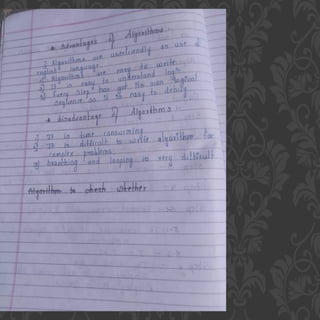 * Advantages of Algorithms :-
1) Algorithms are userfriendly as use of
english language.
2) Algorithms are easy to write.
3) It is easy to understand logic
4) Every step has got its own logical
seqience so it is easy to debug
* disadvantage of Algorithms :-
1) It is time consuming
2) It is difficult to write algorithm for
complex problems.
3) branching and looping is very difficult
Algorithm to check whether